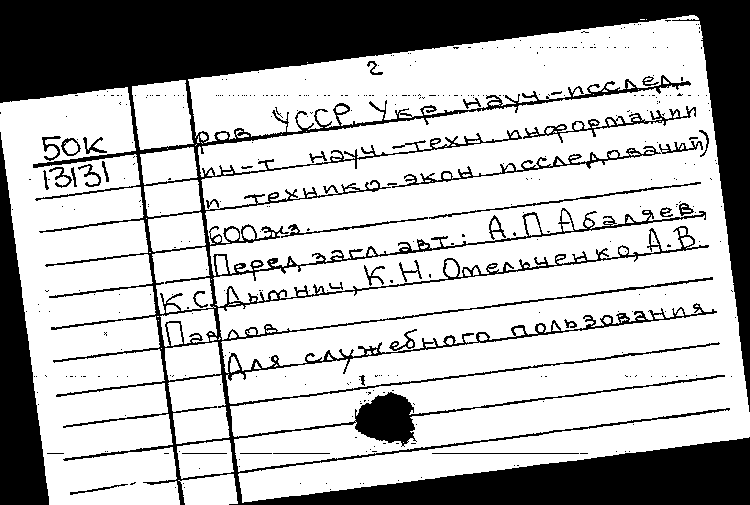 2
50К
13131
ров УССР. Укр. науч.-исслед.
ин-т науч.-техн. информации
и технико-экон. исследований)
600экз.
Перед загл. авт.: А.П.Абаляев,
К.С.Дымнич, К.Н. Омельченко, А.В.
Павлов.
Для служебного пользования.